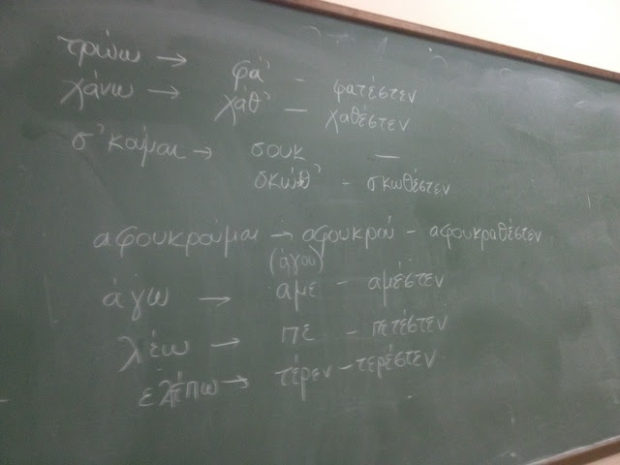 τρώγω → φά' - φατέστεν
χάνω → χάθ' - χαθέστεν
σ'κούμαι → σουκ —
σκώθ' - σκωθέστεν
αφουκρούμαι → αφουκρού - αφουκραθέστεν
(άγου)
άγω → αμε - αμέστεν
λέω → πε - πετέστεν
ελέπω → τέρεν - τερέστεν